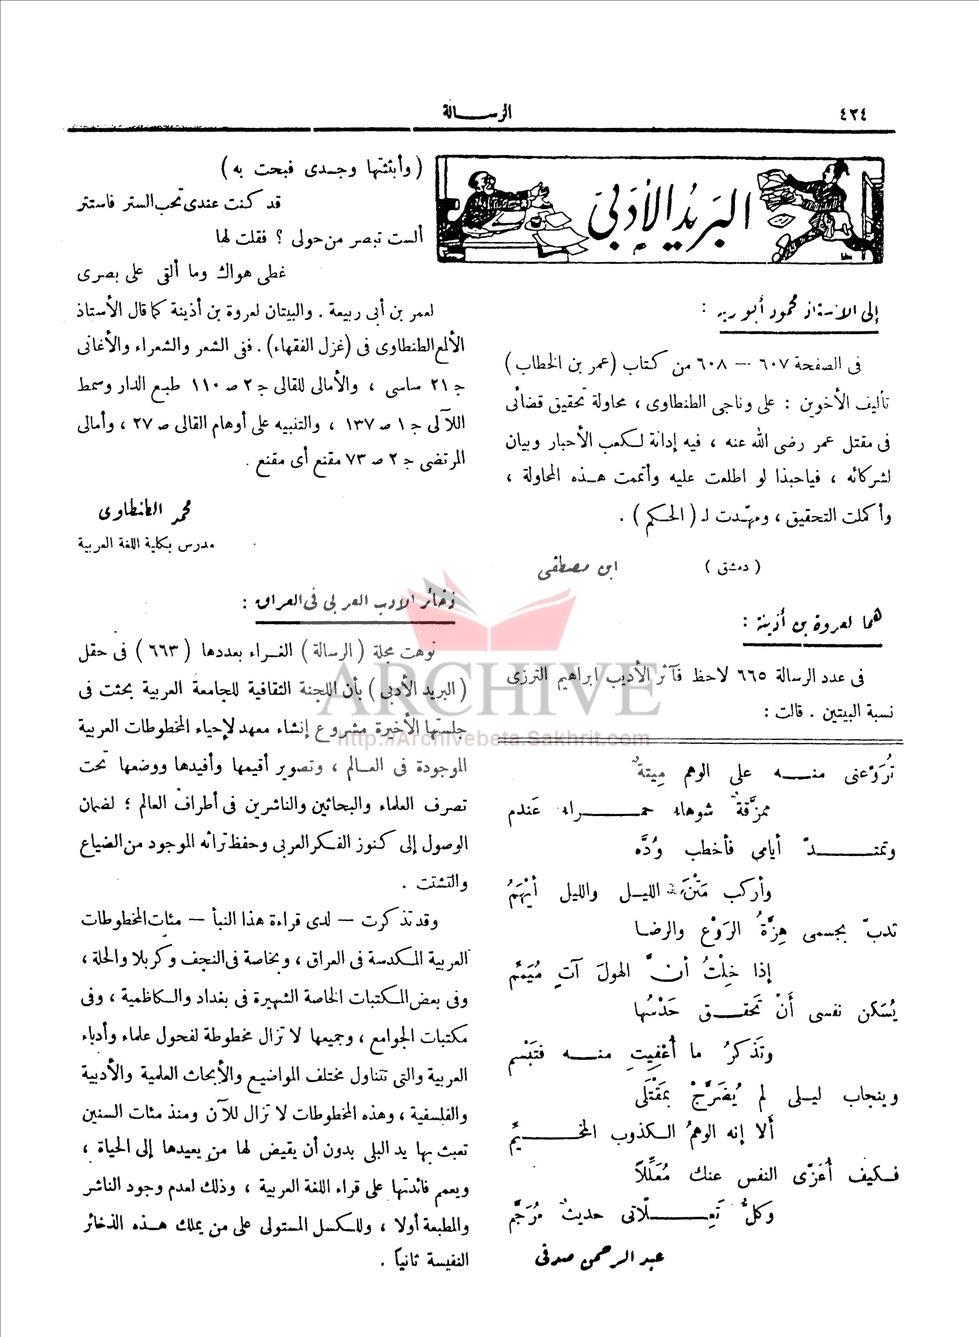 ٤٣٤
الرسالة
البريد الأدبى
إلى الأستاذ محمود أبو ريه :
فى الصفحة ٦٠٧ — ٦٠٨ من كتاب (عمر بن الخطاب)
تأليف الأخوين : على وناجى الطنطاوى ، محاولة تحقيق قضائى
فى مقتل عمر رضى الله عنه ، فيه إدانة لكعب الأحبار وبيان
لشركائه ، فياحبذا لو اطلعت عليه وأتممت هذه المحاولة ،
وأكملت التحقيق ، ومهّدت لـ (الحكم) .
(دمشق) ابن مصطفى
هما لعروة بن أذينة :
فى عدد الرسالة ٦٦٥ لاحظ الأديب ابراهيم الترزى
نسبة البيتين . قالت :
تُرَوِّعنى منه على الوهم مِيتةٌ
ممزَّقةٌ شوهاء حمراء عَندم
وتمتدّ أيامي فأخطب وُدَّه
وأركب مَتْنَ الليل والليل أيْهَمُ
تدبّ بجسمى هِزَّةُ الرَوْع والرضا
إذا خِلْتُ أنَّ الهول آتٍ مُيَمَّم
يُسَكن نفسى أنْ تَحقق حَدْسُها
وتَذكرُ ما أُعْفِيتِ منه فتَبْسم
وينجاب ليلى لم يُضَرَّجْ بمَقْتَلَى
ألا إنه الوهمُ الكذوب المخيَّم
فكيف أُعَزِّى النفس عنك مُعَلِّلاً
وكلُّ تَعِلَّاتى حديثٌ مُرَجَّم
عبد الرحمن صدقى
(وأبثثتها وجدى فبحت به)
قد كنت عندى تحب الستر فاستتر
ألست تبصر من حولى ؟ فقلت لها
غطى هواك وما ألقى على بصرى
لعمر بن أبى ربيعة . والبيتان لعروة بن أذينة كما قال الأستاذ
الألمع الطنطاوى فى (غزل الفقهاء) . ففى الشعر والشعراء والأغانى
ج ٢١ ساسى ، والأمالى للقالى ج ٢ ص ١١٠ طبع الدار وسمط
اللآلى ج ١ ص ١٣٧ ، والتنبيه على أوهام القالى ص ٢٧ ، وأمالى
المرتضى ج ٢ ص ٧٣ مقنع أى مقنع .
محمد الطنطاوى
مدرس بكلية اللغة العربية
ذخائر الأدب العربى فى العراق :
نوهت مجلة (الرسالة) الغراء بعددها (٦٦٣) فى حقل
(البريد الأدبى) بأن اللجنة الثقافية للجامعة العربية بحثت فى
جلستها الأخيرة مشروع إنشاء معهد لإحياء المخطوطات العربية
الموجودة فى العالم ، وتصوير أقيمها وأفيدها ووضعها تحت
تصرف العلماء والبحاثين والناشرين فى أطراف العالم ؛ لضمان
الوصول إلى كنوز الفكر العربى وحفظ تراثه الموجود من الضياع
والتشتت .
وقد تذكرت — لدى قراءة هذا النبأ — مئات المخطوطات
العربية المكدسة فى العراق ، وبخاصة فى النجف وكربلا والحلة ،
وفى بعض المكتبات الخاصة الشهيرة فى بغداد والكاظمية ، وفى
مكتبات الجوامع ، وجميعها لا تزال مخطوطة لفحول علماء وأدباء
العربية والتى تتناول مختلف المواضيع والأبحاث العلمية والأدبية
والفلسفية ، وهذه المخطوطات لا تزال للآن ومنذ مئات السنين
تعبث بها يد البلى بدون أن يقيض لها من يعيدها إلى الحياة ،
ويعمم فائدتها على قراء اللغة العربية ، وذلك لعدم وجود الناشر
والمطبعة أولا ، وللكسل المستولى على من يملك هذه الذخائر
النفيسة ثانياً .
ARCHIVE
http://Archivebeta.Sakhrit.com